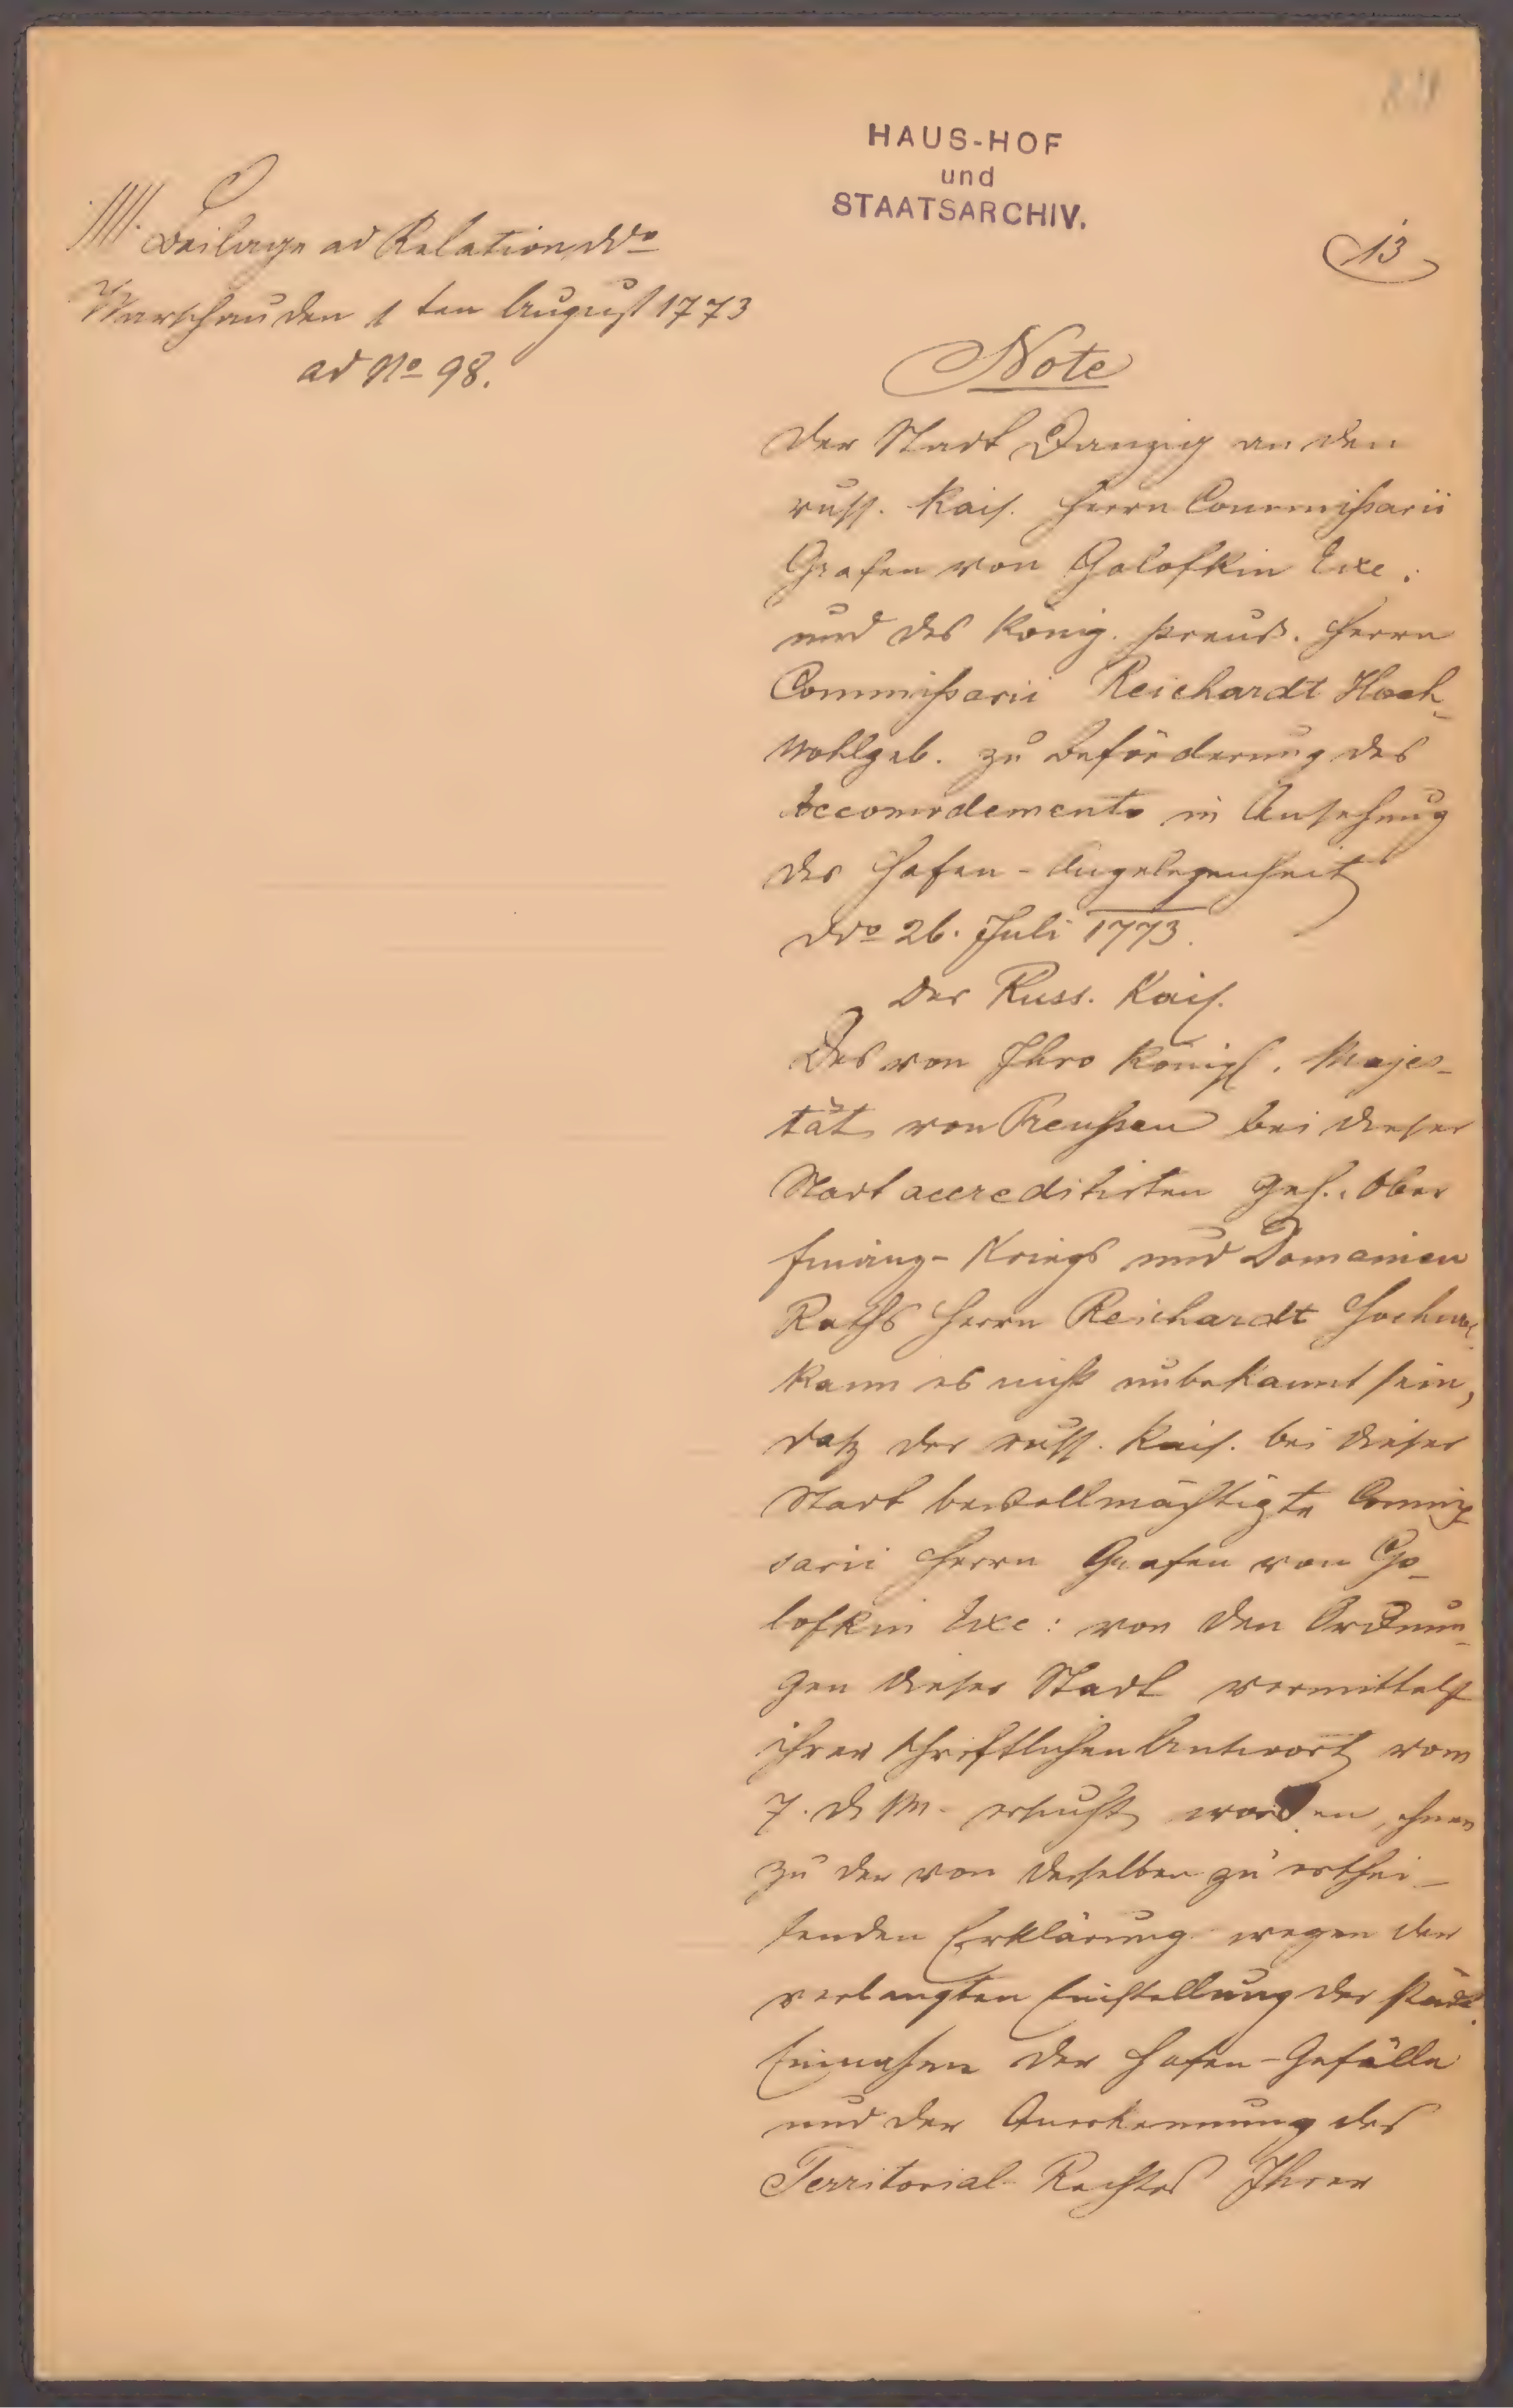 HAUS-HOF
und
STAATSARCHIV.
13
Beilage ad Relation ddo
Warschau den 1ten August 1773
ad No 98.
Note
der Stadt Danzig an den
russ. Kais. Herrn Commißarii
Grafen von Golofkin Exc.
und des König. preuß. Herrn
Commißarii Reichardt Hoch-
wohlgeb. zu Beförderung des
Accomodements in Ansehung
der Hafen-Angelegenheit
ddo 26. Juli 1773.
Der Russ. Kais.
Des von Ihro Königl. Majes-
tät von Preußen bei dieser
Stadt accreditirten Geh. Ober
Finanz- Kriegs und Domainen
Raths Herrn Reichardt Hochw.
kann es nicht unbekannt sein,
daß der russ. Kais. bei dieser
Stadt bevollmächtigte Commis
sarii Herrn Grafen von Go-
lofkin Exc: von den Ordnun-
gen dieser Stadt vermittelst
ihrer schriftlichen Antwort vom
7. d. M. ersucht worden, ihnen
zu der von derselben zu erthei-
lenden Erklärung wegen der
verlangten Einstellung der städt.
Einnahme der Hafen-Gefälle
und der Anerkennung des
Territorial-Rechtes Ihrer